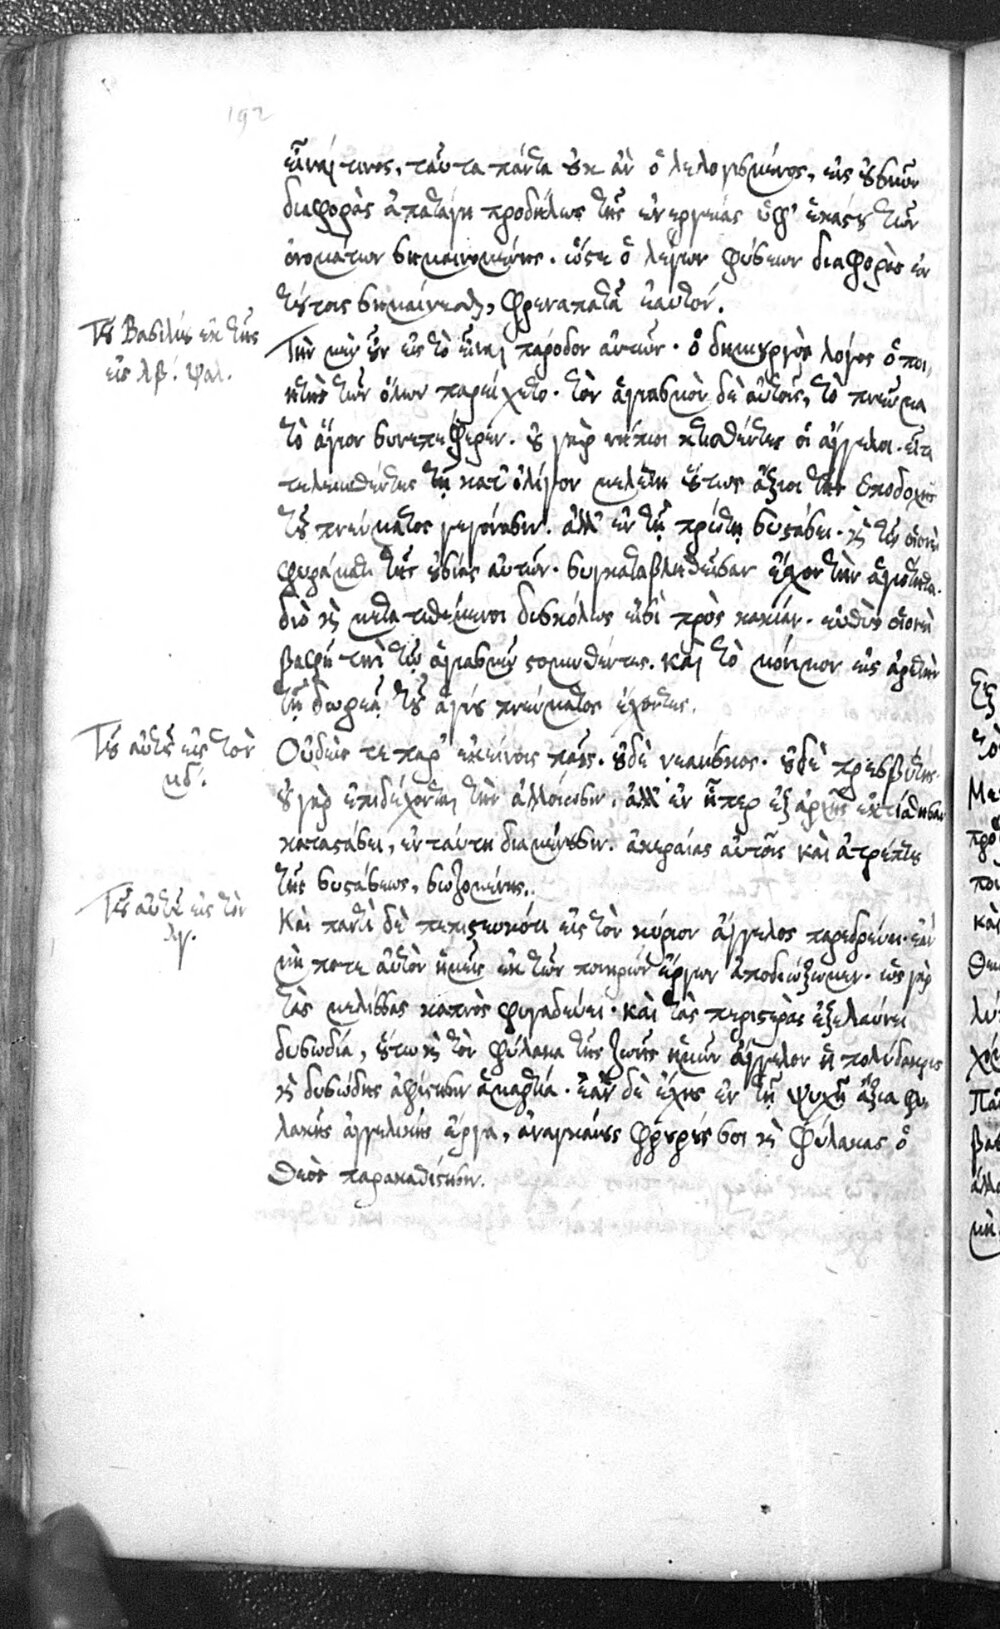 192
εἶναί τινος, ταῦτα πάντα οὐκ ἂν ὁ λελογισμένος, εἰς οὐσιῶν
διαφορὰς ἀπατάγοι προδήλως τῆς ἐνεργείας ὑφ' ἑκάστου τῶν
ὀνομάτων σημαινομένης. ὥστε ὁ λέγων φύσεων διαφορὰς ἐν
τούτοις σημαίνεσθαι, φρεναπατᾷ ἑαυτόν.
Τοῦ Βασιλείου ἐκ τῆς
εἰς λβ΄. ψαλ.
Τὴν μὲν οὖν εἰς τὸ εἶναι πάροδον αὐτῶν. ὁ δημιουργὸς λόγος ὁ ποι
ητὴς τῶν ὅλων παρείχετο. τὸν ἁγιασμὸν δὲ αὐτοῖς, τὸ πνεῦμα
τὸ ἅγιον συνεπεφέρεν. οὐ γὰρ νήπιοι κτισθέντες οἱ ἄγγελοι. εἶτα
τελειωθέντες τῇ κατ' ὀλίγον μελέτῃ οὕτως ἄξιοι τῆς ὑποδοχῆς
τοῦ πνεύματος γεγόνασιν. ἀλλ' ἐν τῇ πρώτῃ συστάσει. καὶ τῷ οἱονεὶ
φυράματι τῆς οὐσίας αὐτῶν. συγκαταβληθεῖσαν ἔχον τὴν ἁγιότητα.
διὸ καὶ μετατιθέμενοι δυσκόλως εἰσὶ πρὸς κακίαν. εὐθὺς οἱονεὶ
βαφῇ τινὶ τῷ ἁγιασμῷ στομωθέντες. καὶ τὸ μόνιμον εἰς ἀρετὴν
τῇ δωρεᾷ τοῦ ἁγίου πνεύματος ἔχοντες.
Τοῦ αὐτοῦ εἰς τὸν
μδ΄.
Οὐδεὶς τε παρ' ἐκείνοις παῖς. οὐδὲ νεανίσκος. οὐδὲ πρεσβύτης.
οὐ γὰρ ἐπιδέχονται τὴν ἀλλοίωσιν. ἀλλ' ἐν ᾗπερ ἐξ ἀρχῆς ἐκτίσθησαν
καταστάσει, ἐν ταύτῃ διαμένουσιν. ἀκεραίας αὐτοῖς καὶ ἀτρέπτου
τῆς συστάσεως, σωζομένης.
Τοῦ αὐτοῦ εἰς τὸν
λγ.
Καὶ παντὶ δὲ πεπιστευκότι εἰς τὸν κύριον ἄγγελος παρεδρεύει. ἐὰν
μή ποτε αὐτὸν ἡμεῖς ἐκ τῶν πονηρῶν ἔργων ἀποδιώξωμεν. ὡς γὰρ
τὰς μελίσσας καπνὸς φυγαδεύει. καὶ τὰς περιστερὰς ἐξελαύνει
δυσωδία, οὕτω καὶ τὸν φύλακα τῆς ζωῆς ἡμῶν ἄγγελον ἡ πολύδακρυς
καὶ δυσώδης ἀφίστησιν ἁμαρτία. ἐὰν δὲ ἔχῃς ἐν τῇ ψυχῇ ἄξια φυ
λακῆς ἀγγελικῆς ἔργα, ἀναγκαίως φρουρούς σοι καὶ φύλακας ὁ
Θεὸς παρακαθίστησιν.